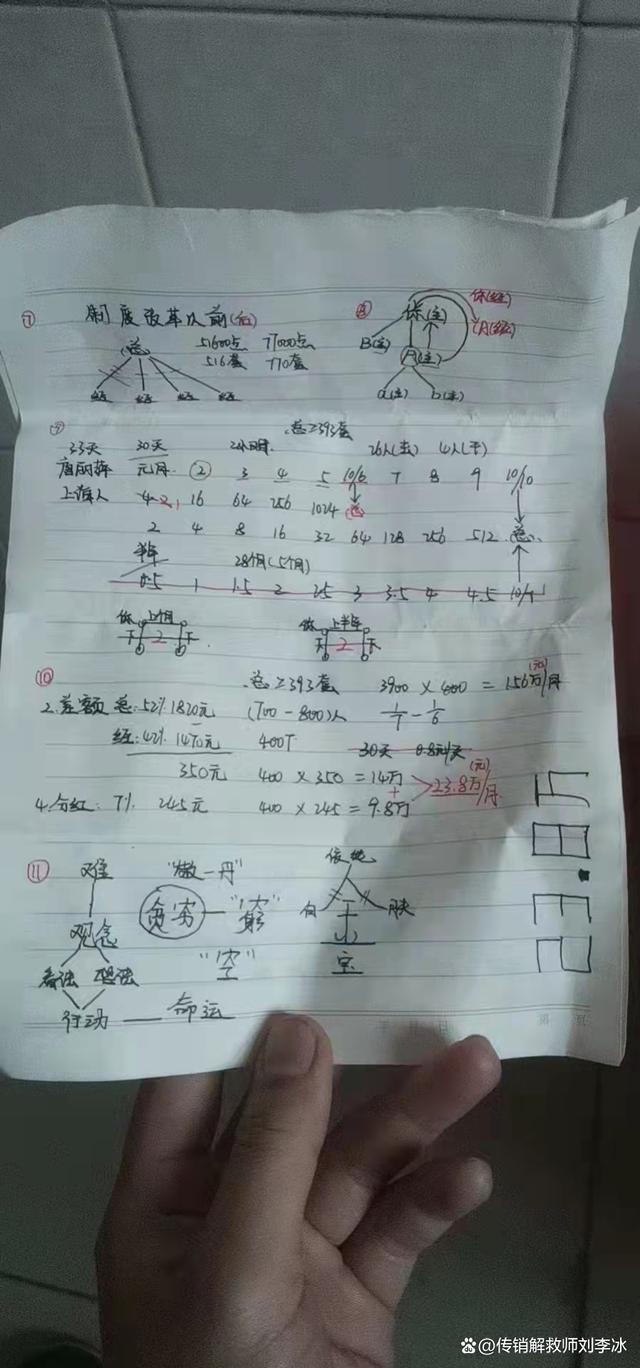 ⑦ 制度改革以前(后)
(总) 51600点 77000点
516套 770套
经 经 经 经
⑧ 你(主) 你(经)
A(经)
B(主) A(主)
a(主) b(主)
⑨ 总≥393套
33天 30天 26人(主) 4人(干)
元月 ② 3 4 5 10/6 7 8 9 10/10
上海人 4 2 16 64 256 1024 总
2 4 8 16 32 64 128 256 512 总
半年 28个月(5个月)
0.5 1 1.5 2 2.5 3 3.5 4 4.5
你 上个月 你 上半年
下 2 下 下 2 下
⑩ 总≥393套 3900 × 400 = 156万/月 (元)
2.差额 总:52% 1820元 (700-800)人 1/7 - 1/6
经:42% 1470元 400T 30天
350元 400 × 350 = 14万
+ > 23.8万/月 (元)
4.分红: 7% 245元 400 × 245 = 9.8万
⑪ 难 贫穷 — "穷"
观念 "空"
看法 想法 宝
行动 — 命运
年 月 日 第 页
@传销解救师刘李冰